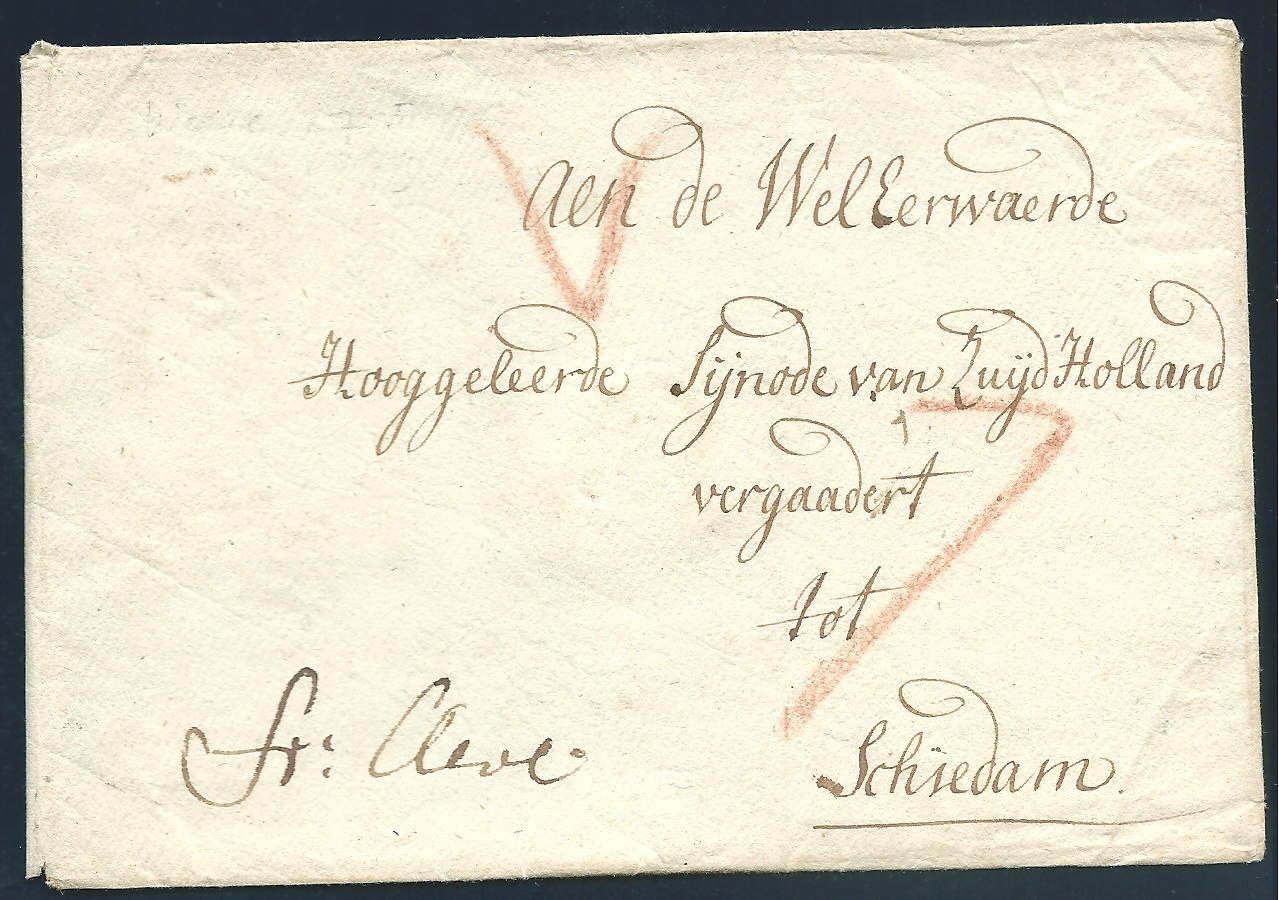 Aen de Wel Eerwaerde
Hooggeleerde Sijnode van Zuijd Holland
vergaadert
tot
Schiedam.
fr: Cleve.
V
7
1